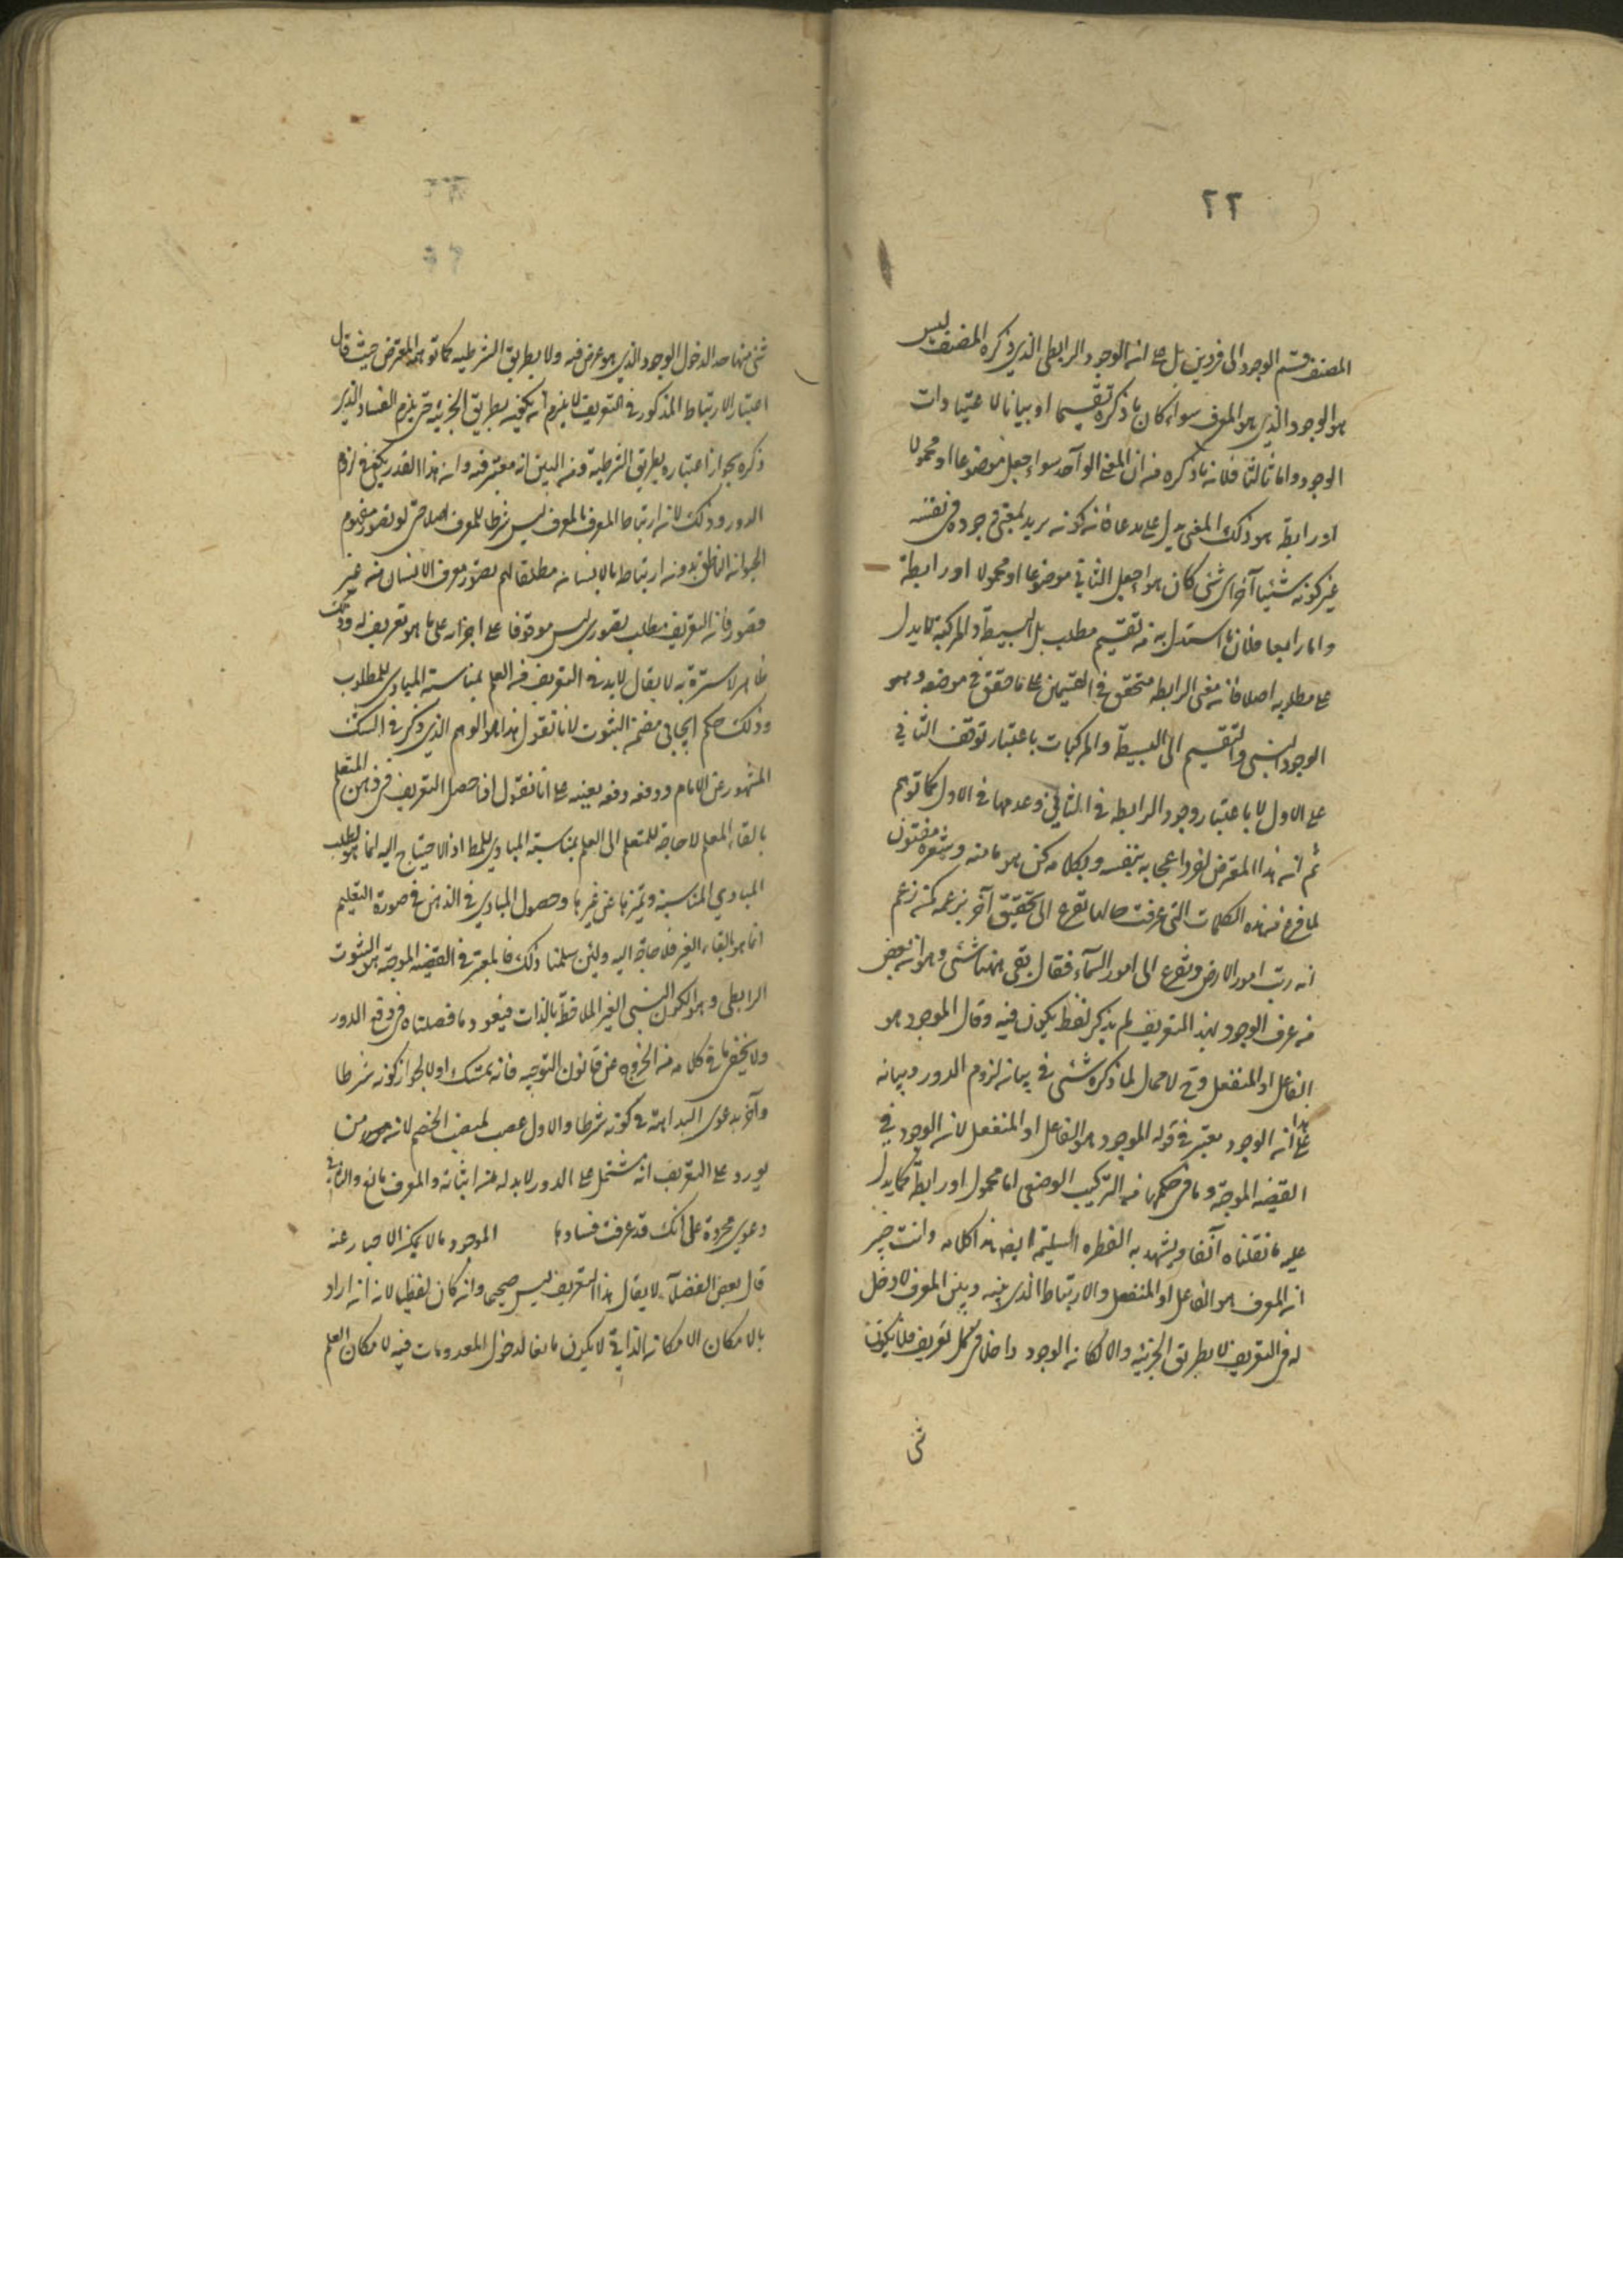 ٢٢
المصنف قسم الوجود الى فردين بل على ان الوجود الرابطى الذي ذكره المصنف ليس
هو الوجود الذي هو المعرف سواء كان ما ذكره تقسيما او بيانا لاعتبارات
الوجود واما ثالثا فلان ما ذكره من ان المعنى الواحد سواء جعل موضوعا او محمولا
او رابطة هو ذلك المعنى يدل على مدعاه فان كونه يريد لمعنى وجوده في نفسه
غير كونه شيئا آخر اى شئ كان هو اجعل الثاني موضوعا او محمولا او رابطة
واما رابعا فلان ما استدل به من تقسيم مطلب هل البسيطة والمركبة لا يدل
على مطلوبه اصلا فان معنى الرابطة متحقق في القسمين على ما حقق في موضعه وهو
الوجود النسبى والتقسيم الى البسيطة والمركبات باعتبار توقف الثاني
على الاول لا باعتبار وجود الرابطة في الثاني وعدمها في الاول كما توهم
ثم ان هذا المعترض لفرط اعجابه بنفسه وبكلامه كمن هو بابنه وشعره مفتون
لما فرغ من هذه الكلمات التي عرفت حالها تعرج الى تحقيق آخر بزعمه كمن زعم
انه رتب امور الارض وتفرع الى امور السماء فقال بقى ههنا شئ وهو ان بعض
من عرف الوجود بهذا التعريف لم يذكر لفظ يكون فيه وقال الموجود هو
الفاعل او المنفعل وح لا مجال لما ذكره شئ في بيان لزوم الدور وبيانه
على هذا ان الوجود معتبر في قوله الموجود هو الفاعل او المنفعل لان الوجود في
القضية الموجبة وما في حكمها من التركيب الوصفى اما محمول او رابطة كما يدل
عليه ما نقلناه آنفا ويشهد به الفطرة السليمة ايضا هذا كلامه وانت خبير
ان المعرف هو الفاعل او المنفعل والارتباط الذي بينه وبين المعرف لا دخل
له في التعريف لا بطريق الجزئية والا لكان الوجود داخلا في كل تعريف فلا يكون
شئ
شئ منها حدا لدخول الوجود الذي هو عرض فيه ولا بطريق الشرطية كما توهم المعترض حيث قال
اعتبار الارتباط المذكور في التعريف لا يلزم ان يكون بطريق الجزئية حتى يلزم الفساد الذي
ذكره بجواز اعتباره بطريق الشرطية ومن البين انه معتبر فيه وان هذا القدر يكفي في لزوم
الدور وذلك لان ارتباط المعرف بالمعرف ليس شرطا للمعرف اصلا حتى لو تصور مفهوم
الحيوان الناطق بدون ارتباط بالانسان مطلقا لم يتصور معرف الانسان من غير
قصور فان التعريف مطلب تصورى ليس موقوفا على اجزائه على ما هو تعريف له وذلك
ظاهر لا سترة به لا يقال لا بد في التعريف من العلم بمناسبة المبادي للمطلوب
وذلك حكم ايجابى متضمن الثبوت لانا نقول هذا هو الوهم الذي ذكر في الشك
المشهور عن الامام ودفعه دفعه بعينه على انا نقول اذا حصل التعريف في ذهن المتعلم
بالقاء المعلم لا حاجة للمتعلم الى العلم بمناسبة المبادي للمط اذ الاحتياج اليه انما هو لطلب
المبادي المناسبة وتميزها عن غيرها وحصول المبادي في الذهن في صورة التعليم
انما هو بالقاء الغير فلا حاجة اليه ولئن سلمنا ذلك فالمعتبر في القضية الموجبة هو الثبوت
الرابطى وهو الكون النسبى الغير الملاحظة بالذات فيعود ما فصلناه في دفع الدور
ولا يخفى ما في كلامه من الخروج عن قانون التوجيه فانه تمسك اولا بجواز كونه شرطا
وآخر بدعوى البداهة في كونه شرطا والاول غصب لمنصب الخصم لانه من
يورد على التعريف انه مشتمل على الدور لا بد له من اثباته والمعرف مانع والثاني
دعوى مجردة على انك قد عرفت فسادها الموجود ما لا يمكن الاخبار عنه
قال بعض الفضلاء لا يقال هذا التعريف ليس صحيحا وان كان لفظيا لانه ان اراد
بالامكان الامكان الذاتي لا يكون مانعا لدخول المعدومات فيه لامكان العلم